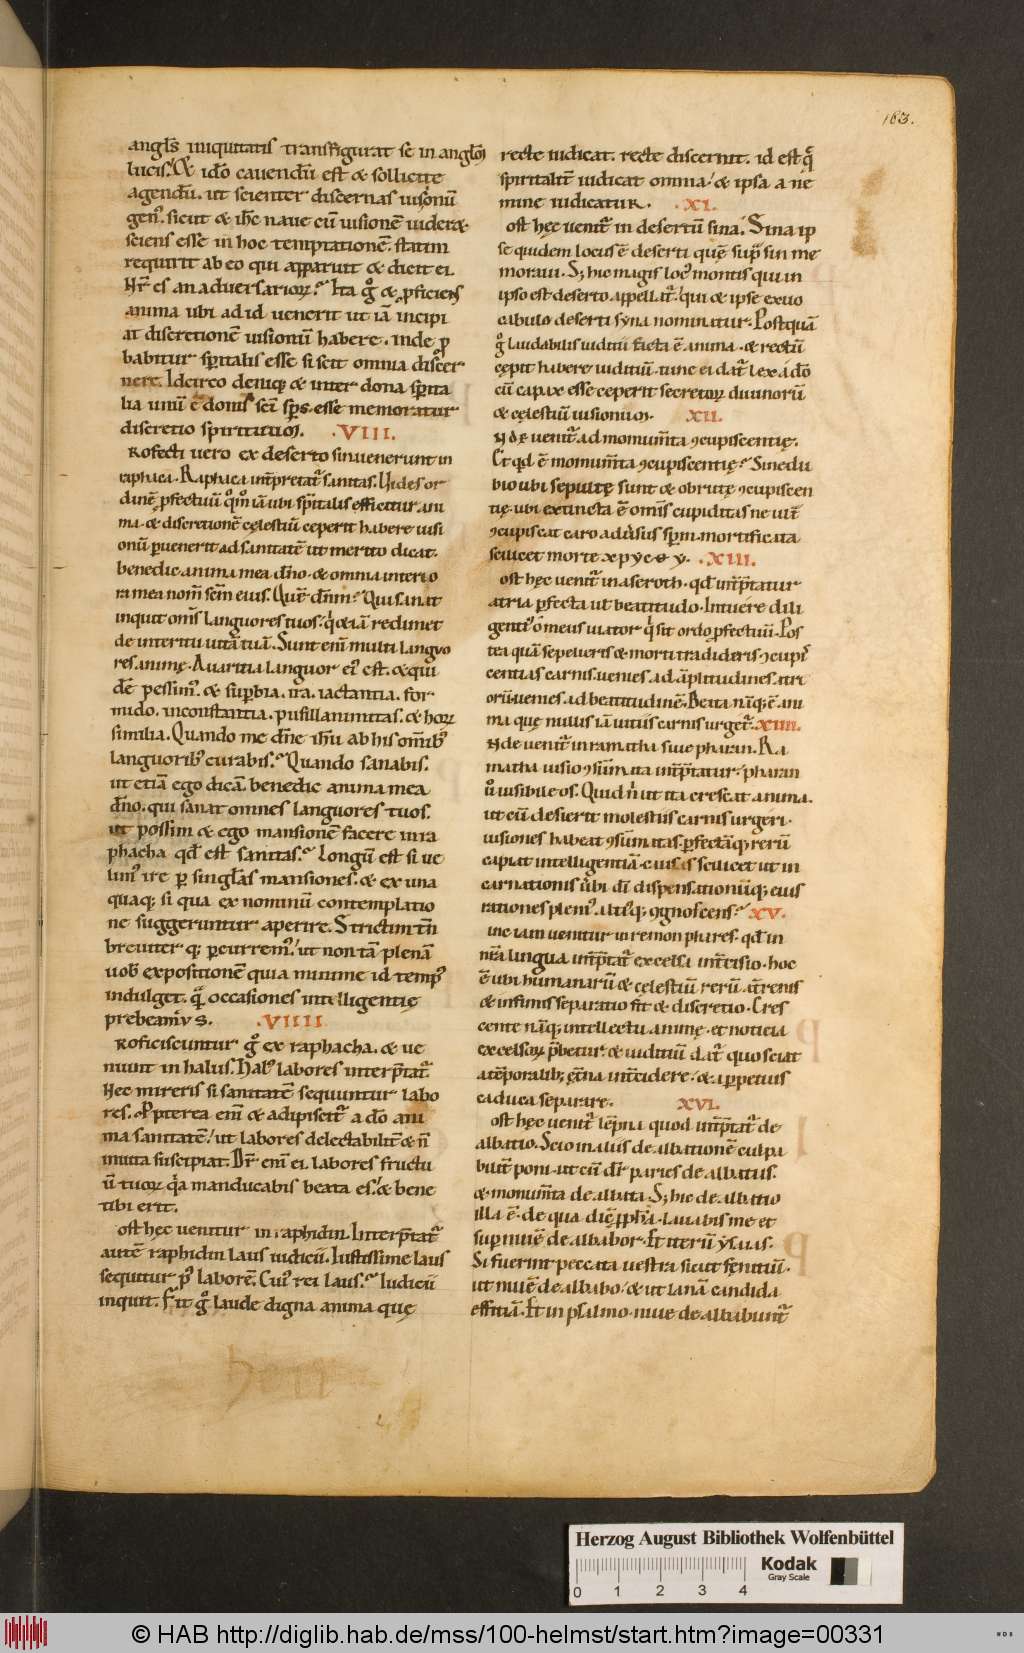 163.
angls iniquitatis transfigurat se in anglm̄
lucis. Et ido cauendū est & sollicite
agendū. ut scienter discernas uisionū
gen'. sicut & ihc naue cū uisionē uideret.
sciens esse in hoc temptationē. statim
requirit ab eo qui apparuit & dicit ei.
Nr̄ es an aduersarioꝝ? Ita g° & ꝓficiens
anima ubi ad id uenerit ut iā incipi
at discretionē uisionū habere. inde ꝓ
babitur spiritalis esse si scit omnia discer
nere. Idcirco deniq; & inter dona spirita
lia unū ē donū scī sps. esse memoratur
discretio spirituum. .VIII.
Rofecti uero ex deserto sin uenerunt in
raphaca. Raphaca int̄pretat̄ sanitas. Vides or
dinē ꝓfectuū quom° iā ubi sp̄italis efficitur ani
ma. & discretionē cęlestiū ceperit habere uisi
onū ꝑuenerit ad sanitatē ut merito dicat.
benedic. anima mea dn̄o. & omnia interio
ra mea nom̄ scm̄ eius. Quē dn̄m? Qui sanat
inquit om̄s languores tuos. qi & iā redimet
de interitu uitā tuā. Sunt eni multi languo
res animę. Auaritia languor ei' est. & qui
dē pessim'. & suꝑbia. ira. iactantia. for
mido. inconstantia. pusillanimitas. & hoꝝ
similia. Quando me dn̄e ihu ab his om̄ib'
languorib' curabis? Quando sanabis.
ut etiā ego dicā. benedic anima mea
dn̄o. qui sanat omnes languores tuos.
ut possim & ego mansionē facere in ra
phacha qd̄ est sanitas? Longū est si ue
lim' ire ꝑ singlas mansiones. & ex una
quaq; si qua ex nominū contemplatio
ne suggeruntur aperire. Strictim tn̄
breuiter q; ꝑcurrem'. ut non tā plenā
uob' expositionē quia minime id temp'
indulget. quā occasiones intelligentię
prebeamus. .VIIII
Roficiscuntur g° ex raphacha. & ue
niunt in halus. Hal' labores interp̄tat̄
Nec mireris si sanitatē sequuntur labo
res. Ppterea eni & adipiscit̄ a dō ani
ma sanitatē. ut labores delectabilit̄ & n̄
inuita suscipiat. Dr̄ eni ei. labores fructu
ū tuoꝝ qa manducabis beata es. & bene
tibi erit.
ost hęc uenitur in raphidin. Interp̄tat̄
autē raphidin laus iudicii. Iustissime laus
sequitur p' laborē. Cui' rei laus? Iudicii
inquit. Fit g° laude digna anima quę
recte iudicat. recte discernit. id est q̄
spiritalit̄ iudicat omnia. & ipsa a ne
mine iudicatur. .XI.
ost hęc uenit̄ in desertū sina. Sina ip
se quidem locus ē deserti quē sup̄ sin me
moraui. S; hic magis loc' montis qui in
ipso est deserto. appellat̄. qui & ipse ex uo
cabulo deserti syna nominatur. Postquā
g° laudabilis iudicii facta ē anima. & rectū
cępit habere iudiciū. tunc ei dat̄ lex a dō
cū capax esse ceperit secretoꝝ diuinorū
& cęlestiū uisionum. XII.
Nde uenit̄ ad monum̄ta ɔcupiscentię.
Et qd ē monum̄ta ɔcupiscentię? Sine du
bio ubi sepultę sunt & obrutę ɔcupiscen
tię. ubi extincta ē om̄is cupiditas ne ult̄
ɔcupiscat caro aduersus spm̄. mortificata
scilicet morte xpyc& y. .XIII.
ost hęc uenit̄ in aseroth. qd̄ int̄p̄tatur
atria perfecta ut beatitudo. Intuere dili
genti' o meus uiator qis sit ordo ꝓfectuū. Pos
tea quā sepelieris & morti tradideris ɔcupis
centias carnis. uenies. ad āplitudines. atri
orū. uenies. ad beatitudinē. Beata nāq; ē. ani
ma quę nullis iā uitiis carnis urget̄. XIIII.
Nde uenit̄ in ramatha siue pharan. Ra
matha uisio ɔsūmata int̄p̄tatur. pharan
u° uisibile os. Quid n' ut ita crescat anima.
ut cū desierit molestiis carnis urgeri.
uisiones habeat ɔsūmatas. ꝑfectāq; rerū
capiat intelligentiā. causas scilicet ut in
carnationis ubi dī dispensationūq; eius
rationes pleni' altiusq; ɔgnoscens? XV.
inc iam uenitur in remon phares. qd in
nr̄a lingua int̄p̄tat̄ excelsa int̄cisio. hoc
ē ubi humanarū & cęlestiū rerū. at̄renis
& infimis separatio fit & discretio. Cres
cente nāq; intellectu animę. et noticia
excelsoꝝ p̄betur. & iudiciū dat̄ quo sciat
atēporalib; ęt̄na int̄cidere. & a ꝑpetuis
caduca separare. XVI.
ost hęc uenit̄ lepna quod int̄p̄tat̄ de
albatio. Scio in aliis de albationē culpa
bilit̄ poni. ut cū dr̄ paries de albatus.
& monum̄ta de albata. S; hic de albatio
illa ē. de qua dic̄ ppha. lauabis me et
super niuē de albabor. Et iterū ysaias.
Si fuerint peccata uestra sicut fęniciū.
ut niuē de albabo. & ut lanā candida
efficiā. Et in psalmo. niue de albabunt̄
Herzog August Bibliothek Wolfenbüttel
0 1 2 3 4
Kodak
Gray Scale
© HAB http://diglib.hab.de/mss/100-helmst/start.htm?image=00331